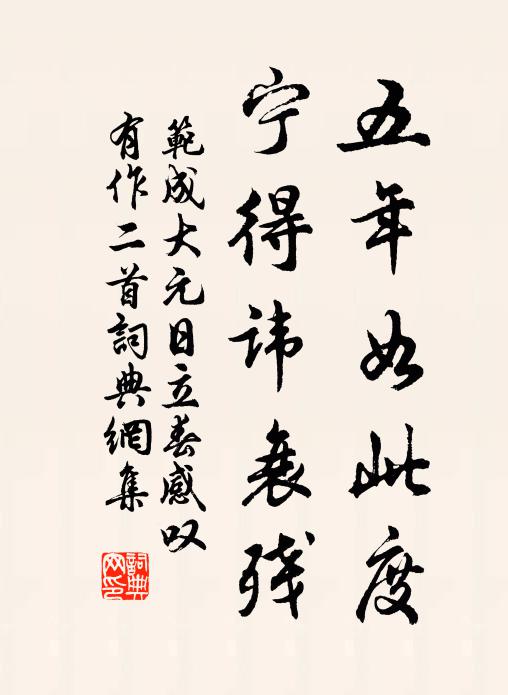 五年如此度
宁得讳衰残
範成大元日立春感叹
有作二首詞典網集
詞典
网印